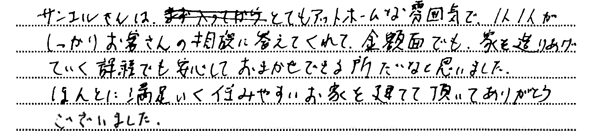 サンエルさんは、とてもアットホームな雰囲気で、1人1人が
しっかりお客さんの相談に答えてくれて、金額面でも、家を造りあげ
ていく課程でも安心しておまかせできる所だなと思いました。
ほんとに満足いく住みやすいお家を建てて頂いてありがとう
ございました。